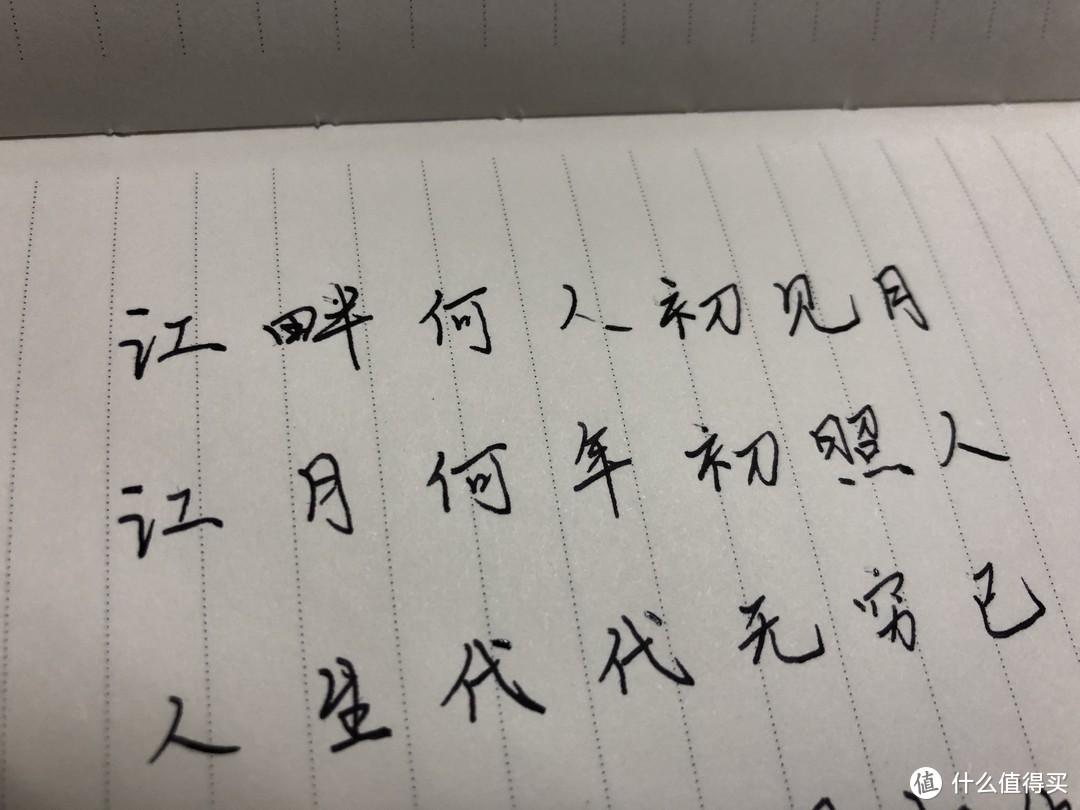 江畔何人初见月
江月何年初照人
人生代代无穷已
值 什么值得买